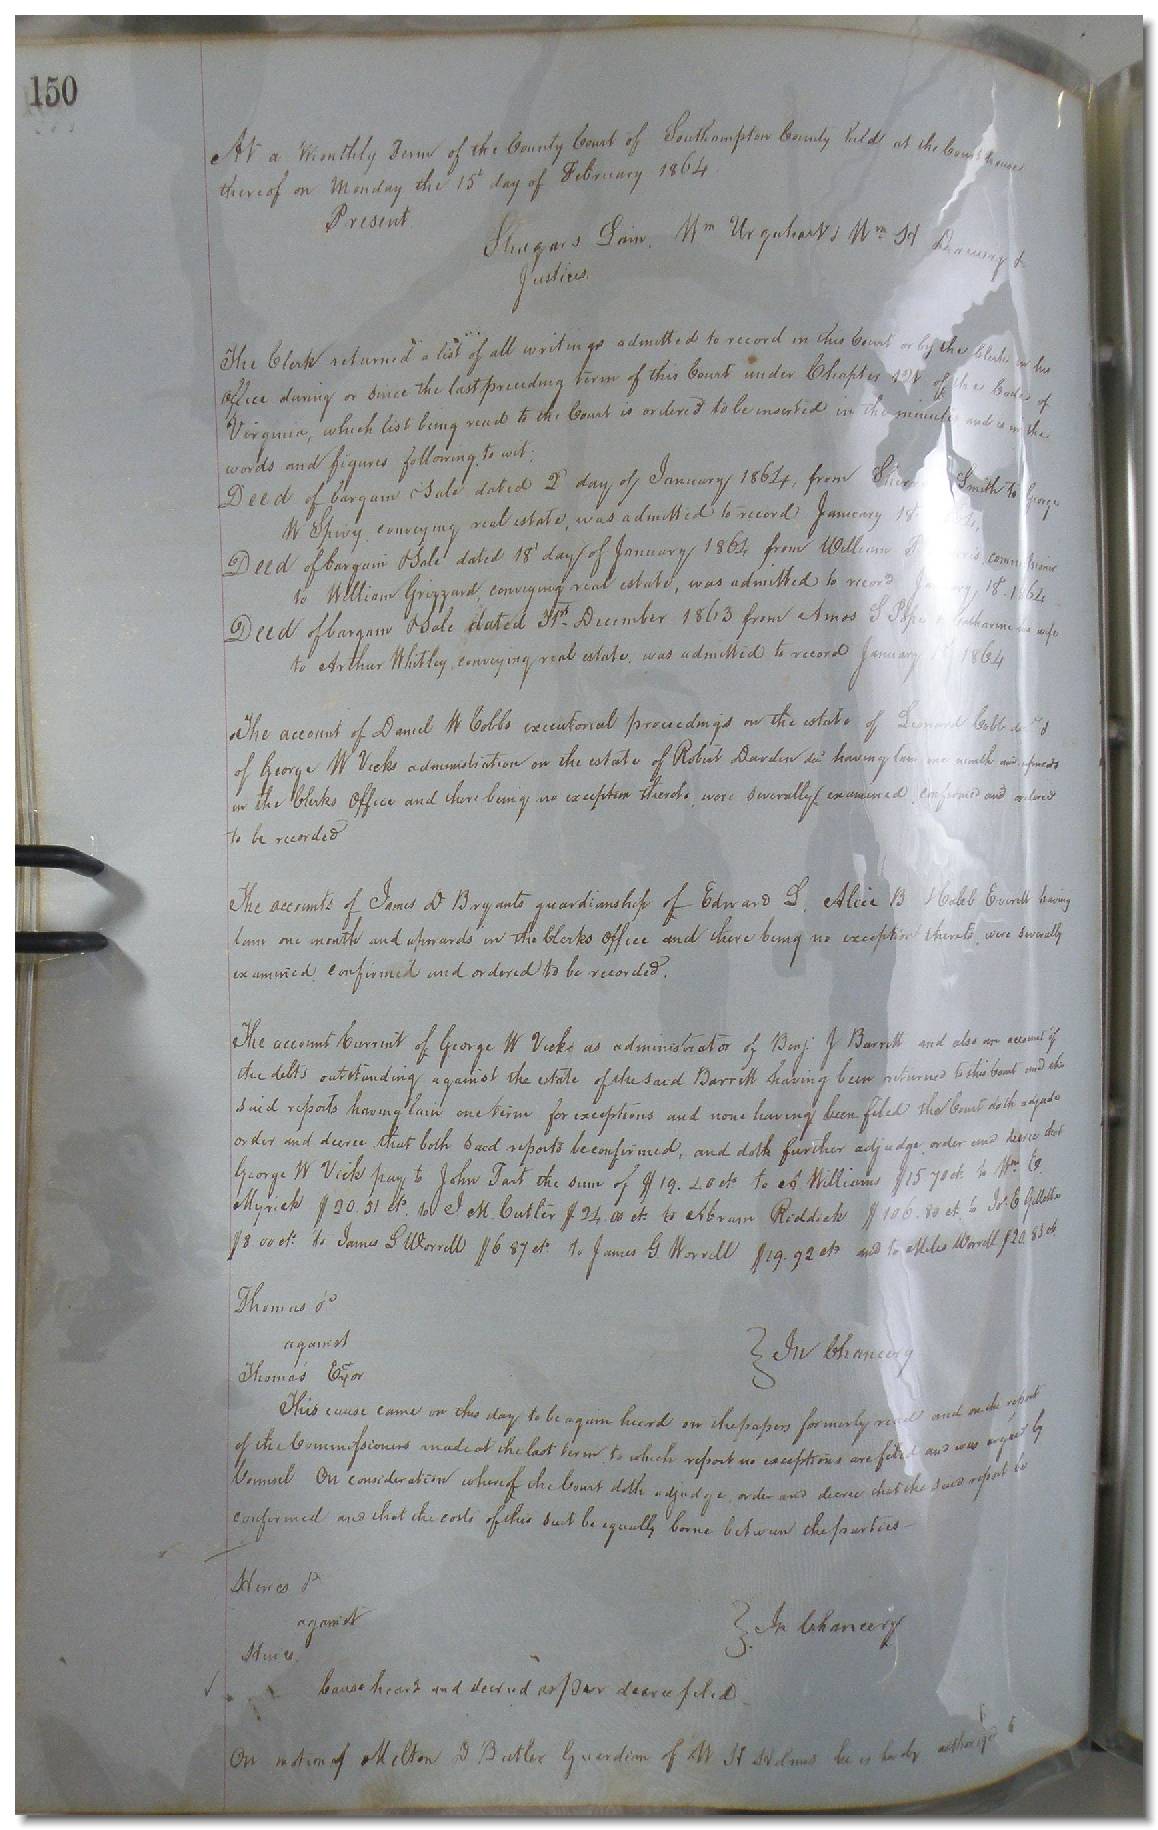 150
At a Monthly Term of the County Court of Southampton County held at the Courthouse
thereof on Monday the 15t day of February 1864
Present
Lain, Wm Urquhart & Wm H
Justices.
The Clerk returned a list of all writings admitted to record in this Court or by the Clerk in his
office during or since the last preceding term of this Court under Chapter 121 of the Codes of
Virginia, which list being read to the Court is ordered to be inserted in the minutes and is in the
words and figures following, to wit:
Deed of bargain & Sale dated 2d day of January 1864, from Smith to George
W Spivy, conveying real estate, was admitted to record January 18
Deed of bargain & Sale dated 18t day of January 1864 from William commissioner
to William Grizzard, conveying real estate, was admitted to record January, 18. 1864
Deed of bargain & Sale dated 31st December 1863 from Amos S Catharine his wife
to Arthur Whitley, conveying real estate, was admitted to record January 1864
The account of Daniel W Cobbs executorial proceedings on the estate of Cobb decd &
of George W Vicks administration on the estate of Robert Darden dec having lain one month and upwards
in the Clerks Office and there being no exception thereto, were severally examined, confirmed and ordered
to be recorded
The accounts of James D Bryants guardianship of Edward L, Alice B & Caleb Everett having
lain one month and upwards in the Clerks Office and there being no exception thereto, were severally
examined, confirmed and ordered to be recorded.
The account Current of George W Vicks as administrator of Benj J Barrett and also an account of
the debts outstanding against the estate of the said Barrett having been returned to this Court and the
said reports having lain one term for exceptions and none having been filed the Court doth adjudge
order and decree that both said reports be confirmed, and doth further adjudge order and decree that
George W Vick pay to John Tart the sum of $19. 20 cts to A. Williams $15 70 ct. to Wm C.
Myrick $20. 31 ct. to J. M. Cutler $24. 00 ct. to Abram Riddick $106. 80 ct. to
$8. 00 ct. to James S Worrell $6 87 ct. to James G. Worrell $19. 92 cts and to Miles Worrell $20. 83 ct.
Thomas &c
against
Thomas Exor
} In Chancery
This cause came on this day, to be again heard on the papers formerly read and on the report
of the Commissioners made at the last term, to which report no exceptions are filed and was argued by
Counsel On consideration whereof the Court doth adjudge, order and decree that the said report be
confirmed and that the costs of this suit be equally borne between the parties
Hines &c
against
Hines.
} In Chancery
Cause heard and decreed as per decree filed
On motion of Melton D Butler Guardian of W H he is hereby authorized